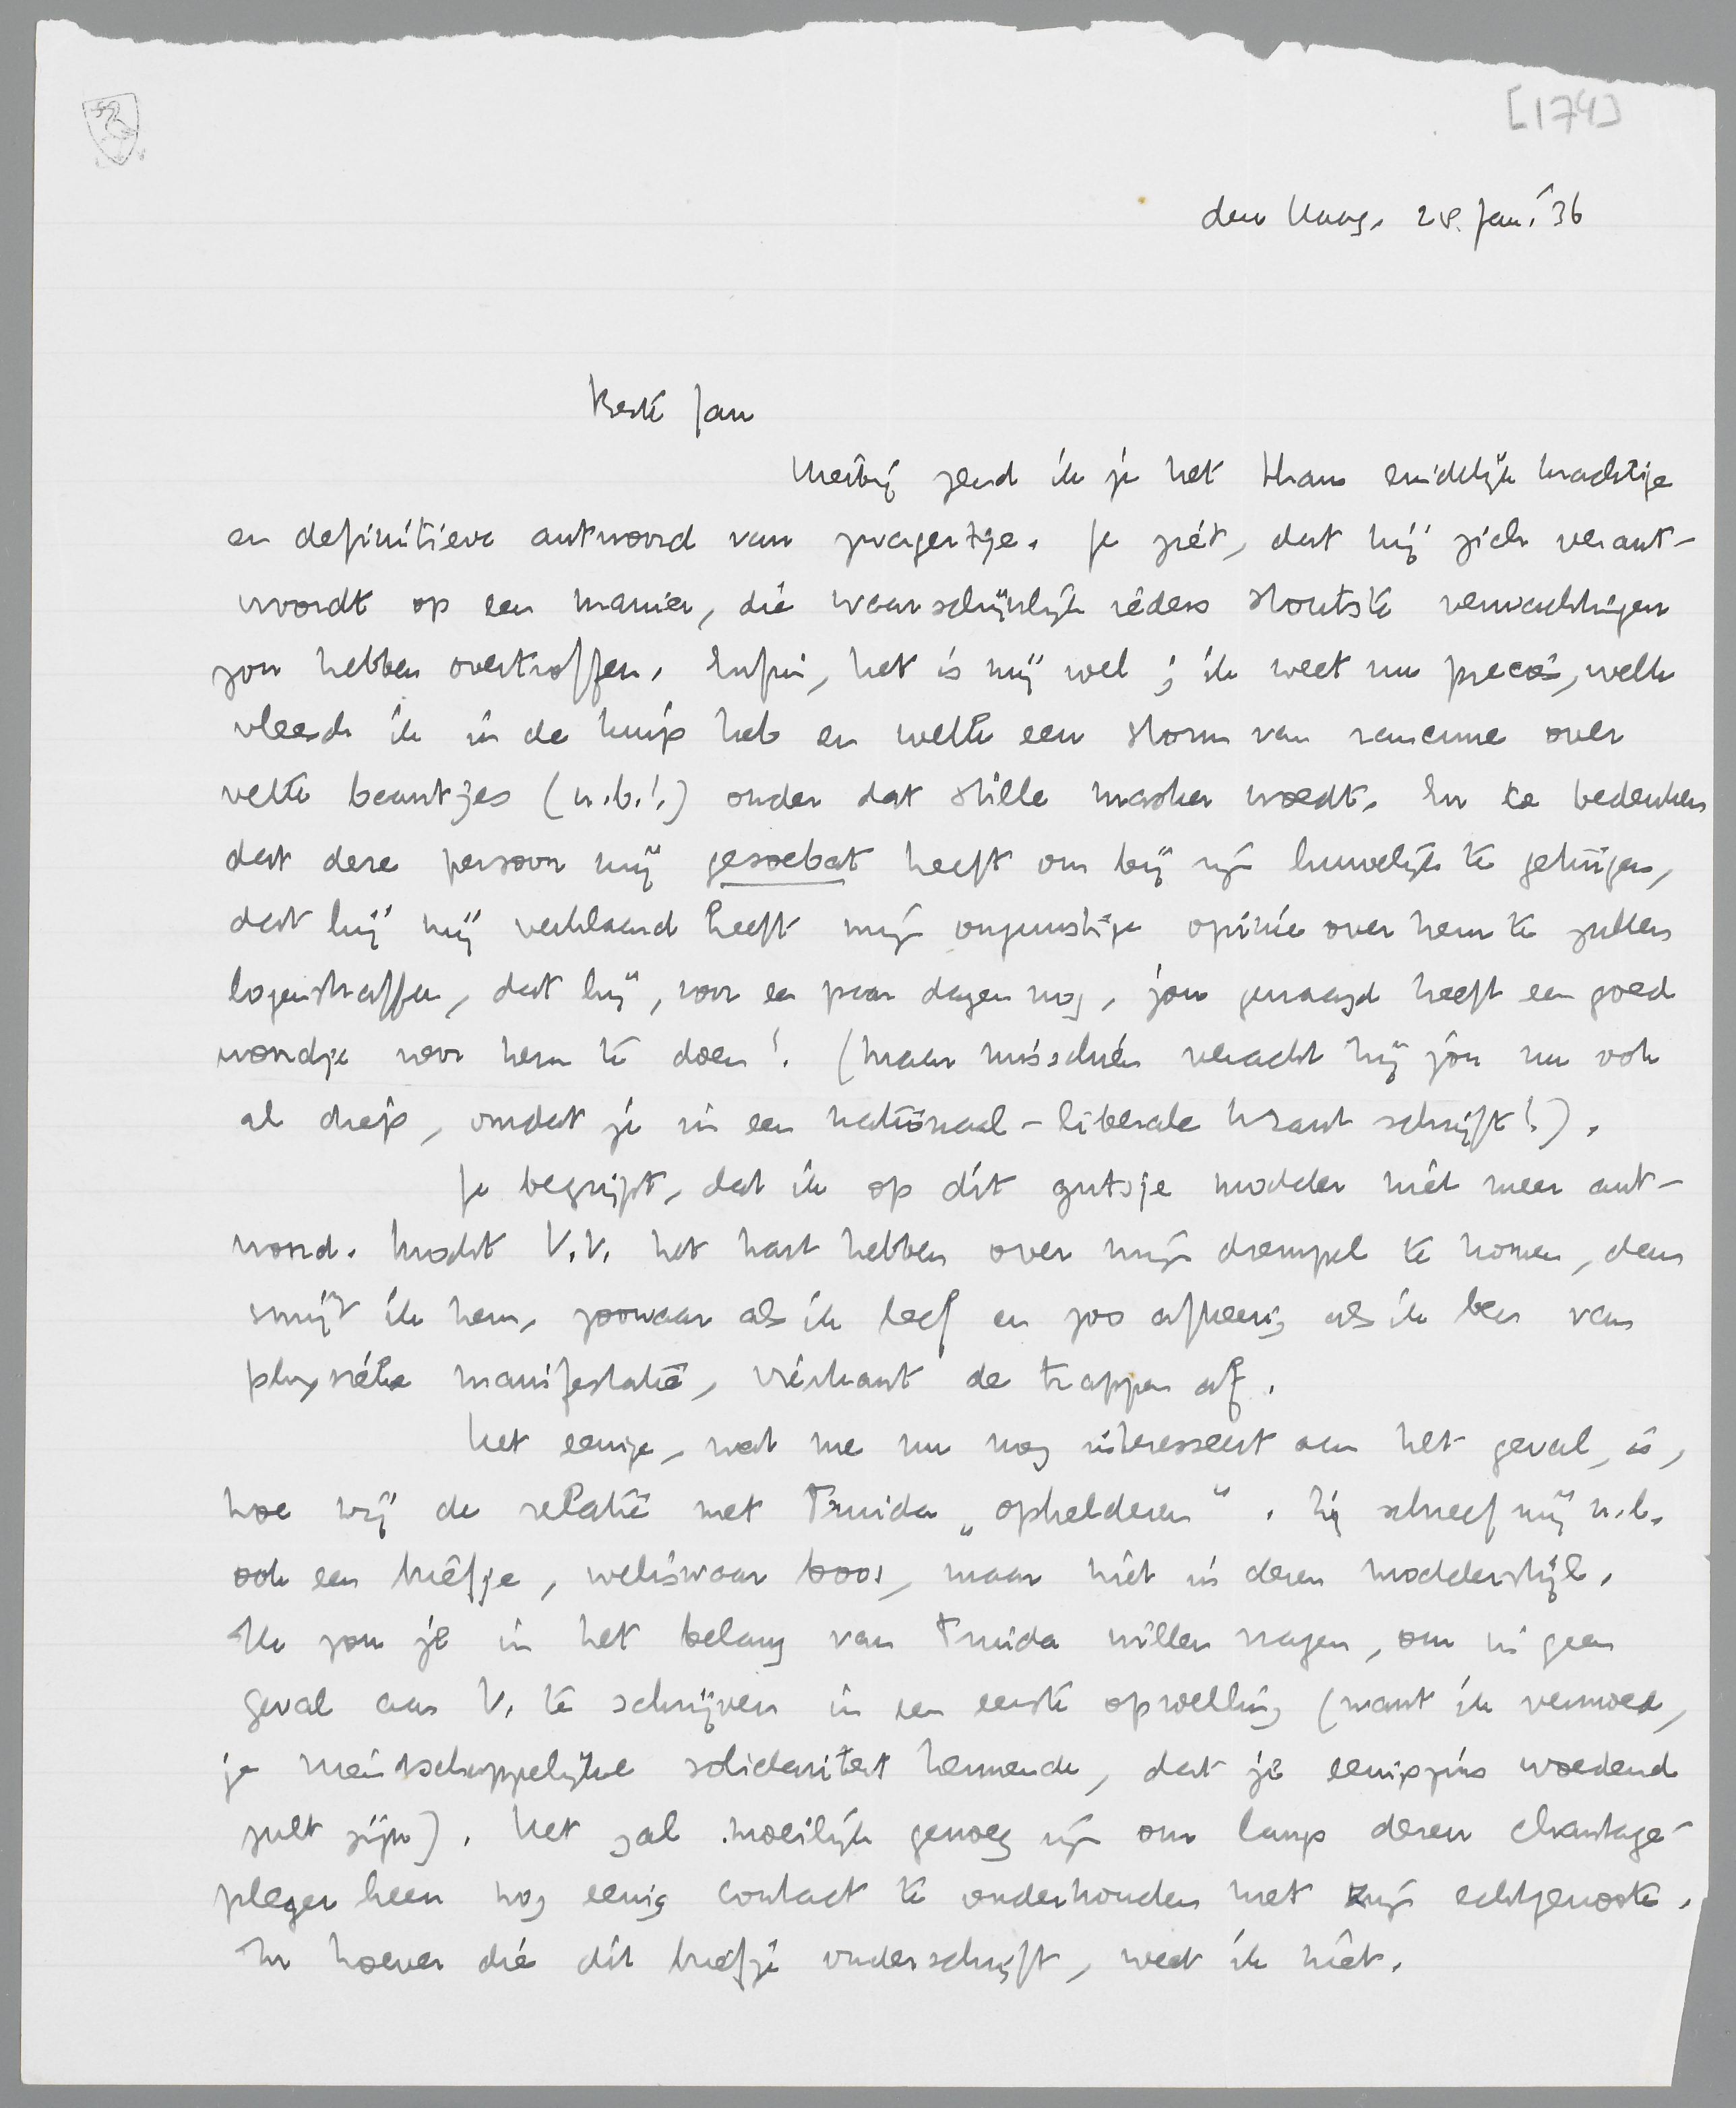 [174]
den Haag, 28. Jan. '36
Beste Jan
Hierbij zend ik je het thans eindelijk krachtige
en definitieve antwoord van zwagertje. Je ziet, dat hij zich verant-
woordt op een manier, die waarschijnlijk ieders stoutste verwachtingen
zou hebben overtroffen. Enfin, het is mij wel; ik weet nu precies, welk
vleesch ik in de kuip heb en welk een storm van rancune over
vette baantjes (n.b.!) onder dat stille masker woedt. En te bedenken
dat deze persoon mij gesoebat heeft om bij zijn huwelijk te getuigen,
dat hij mij verklaard heeft mijn ongunstige opinie over hem te zullen
logenstraffen, dat hij, voor een paar dagen nog, jou gevraagd heeft een goed
woordje voor hem te doen! (Maar misschien veracht hij jou nu ook
al diep, omdat je in een nationaal-liberale krant schrijft!).
Je begrijpt, dat ik op dit gutsje modder niet meer ant-
woord. Mocht V.V. het hart hebben over mijn drempel te komen, dan
smijt ik hem, zoowaar als ik leef en zoo afkeerig als ik ben van
physieke manifestatie, vierkant de trappen af.
Het eenige, wat me nu nog interesseert aan het geval, is,
hoe wij de relatie met Truida „ophelderen". Zij schreef mij n.l.
ook een briefje, weliswaar boos, maar niet in dezen modderstijl.
Ik zou je in het belang van Truida willen vragen, om in geen
geval aan V. te schrijven in een eerste opwelling (want ik vermoed,
je vriendschappelijke solidariteit kennende, dat je eenigszins woedend
zult zijn). Het zal moeilijk genoeg zijn om langs dezen chantage-
pleger heen nog eenig contact te onderhouden met zijn echtgenoote.
In hoever die dit briefje onderschrijft, weet ik niet.